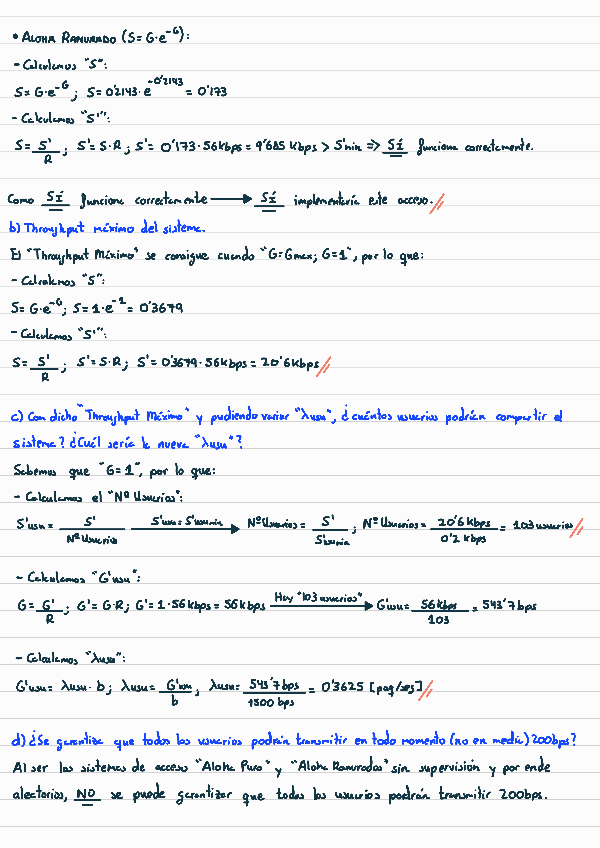 • ALOHA RANURADO (S = G·e^-G):
- Calculamos "S":
S = G·e^-G ; S = 0'2143·e^-0'2143 = 0'173
- Calculamos "S'":
S = S'/R ; S' = S·R ; S' = 0'173·56kbps = 9'685 Kbps > S'min => SÍ funciona correctamente.
Como SÍ funciona correctamente → SÍ implementaría este acceso.
b) Throughput máximo del sistema.
El "Throughput Máximo" se consigue cuando "G=Gmax; G=1", por lo que:
- Calculamos "S":
S = G·e^-G ; S = 1·e^-1 = 0'3679
- Calculamos "S'":
S = S'/R ; S' = S·R ; S' = 0'3679·56Kbps = 20'6Kbps
c) Con dicho "Throughput Máximo" y pudiendo variar "λusu", ¿cuántos usuarios podrían compartir el
sistema? ¿Cuál sería la nueva "λusu"?
Sabemos que "G=1", por lo que:
- Calculamos el "Nº Usuarios":
S'usu = S'/Nº Usuarios → S'usu = S'usumin → Nº Usuarios = S'/S'usumin ; Nº Usuarios = 20'6 Kbps/0'2 Kbps = 103 usuarios
- Calculamos "G'usu":
G = G'/R ; G' = G·R ; G' = 1·56Kbps = 56Kbps → Hay "103 usuarios" → G'usu = 56Kbps/103 = 543'7bps
- Calculamos "λusu":
G'usu = λusu·b ; λusu = G'usu/b ; λusu = 543'7bps/1500 bps = 0'3625 [paq/seg]
d) ¿Se garantiza que todos los usuarios podrán transmitir en todo momento (no en media) 200bps?
Al ser los sistemas de acceso "Aloha Puro" y "Aloha Ranurados" sin supervisión y por ende
aleatorios, NO se puede garantizar que todos los usuarios podrán transmitir 200bps.